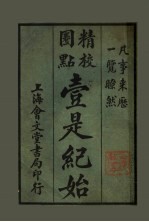 凡事来歷
一覽瞭然
精校圈點
壹是紀始
上海會文堂書局印行